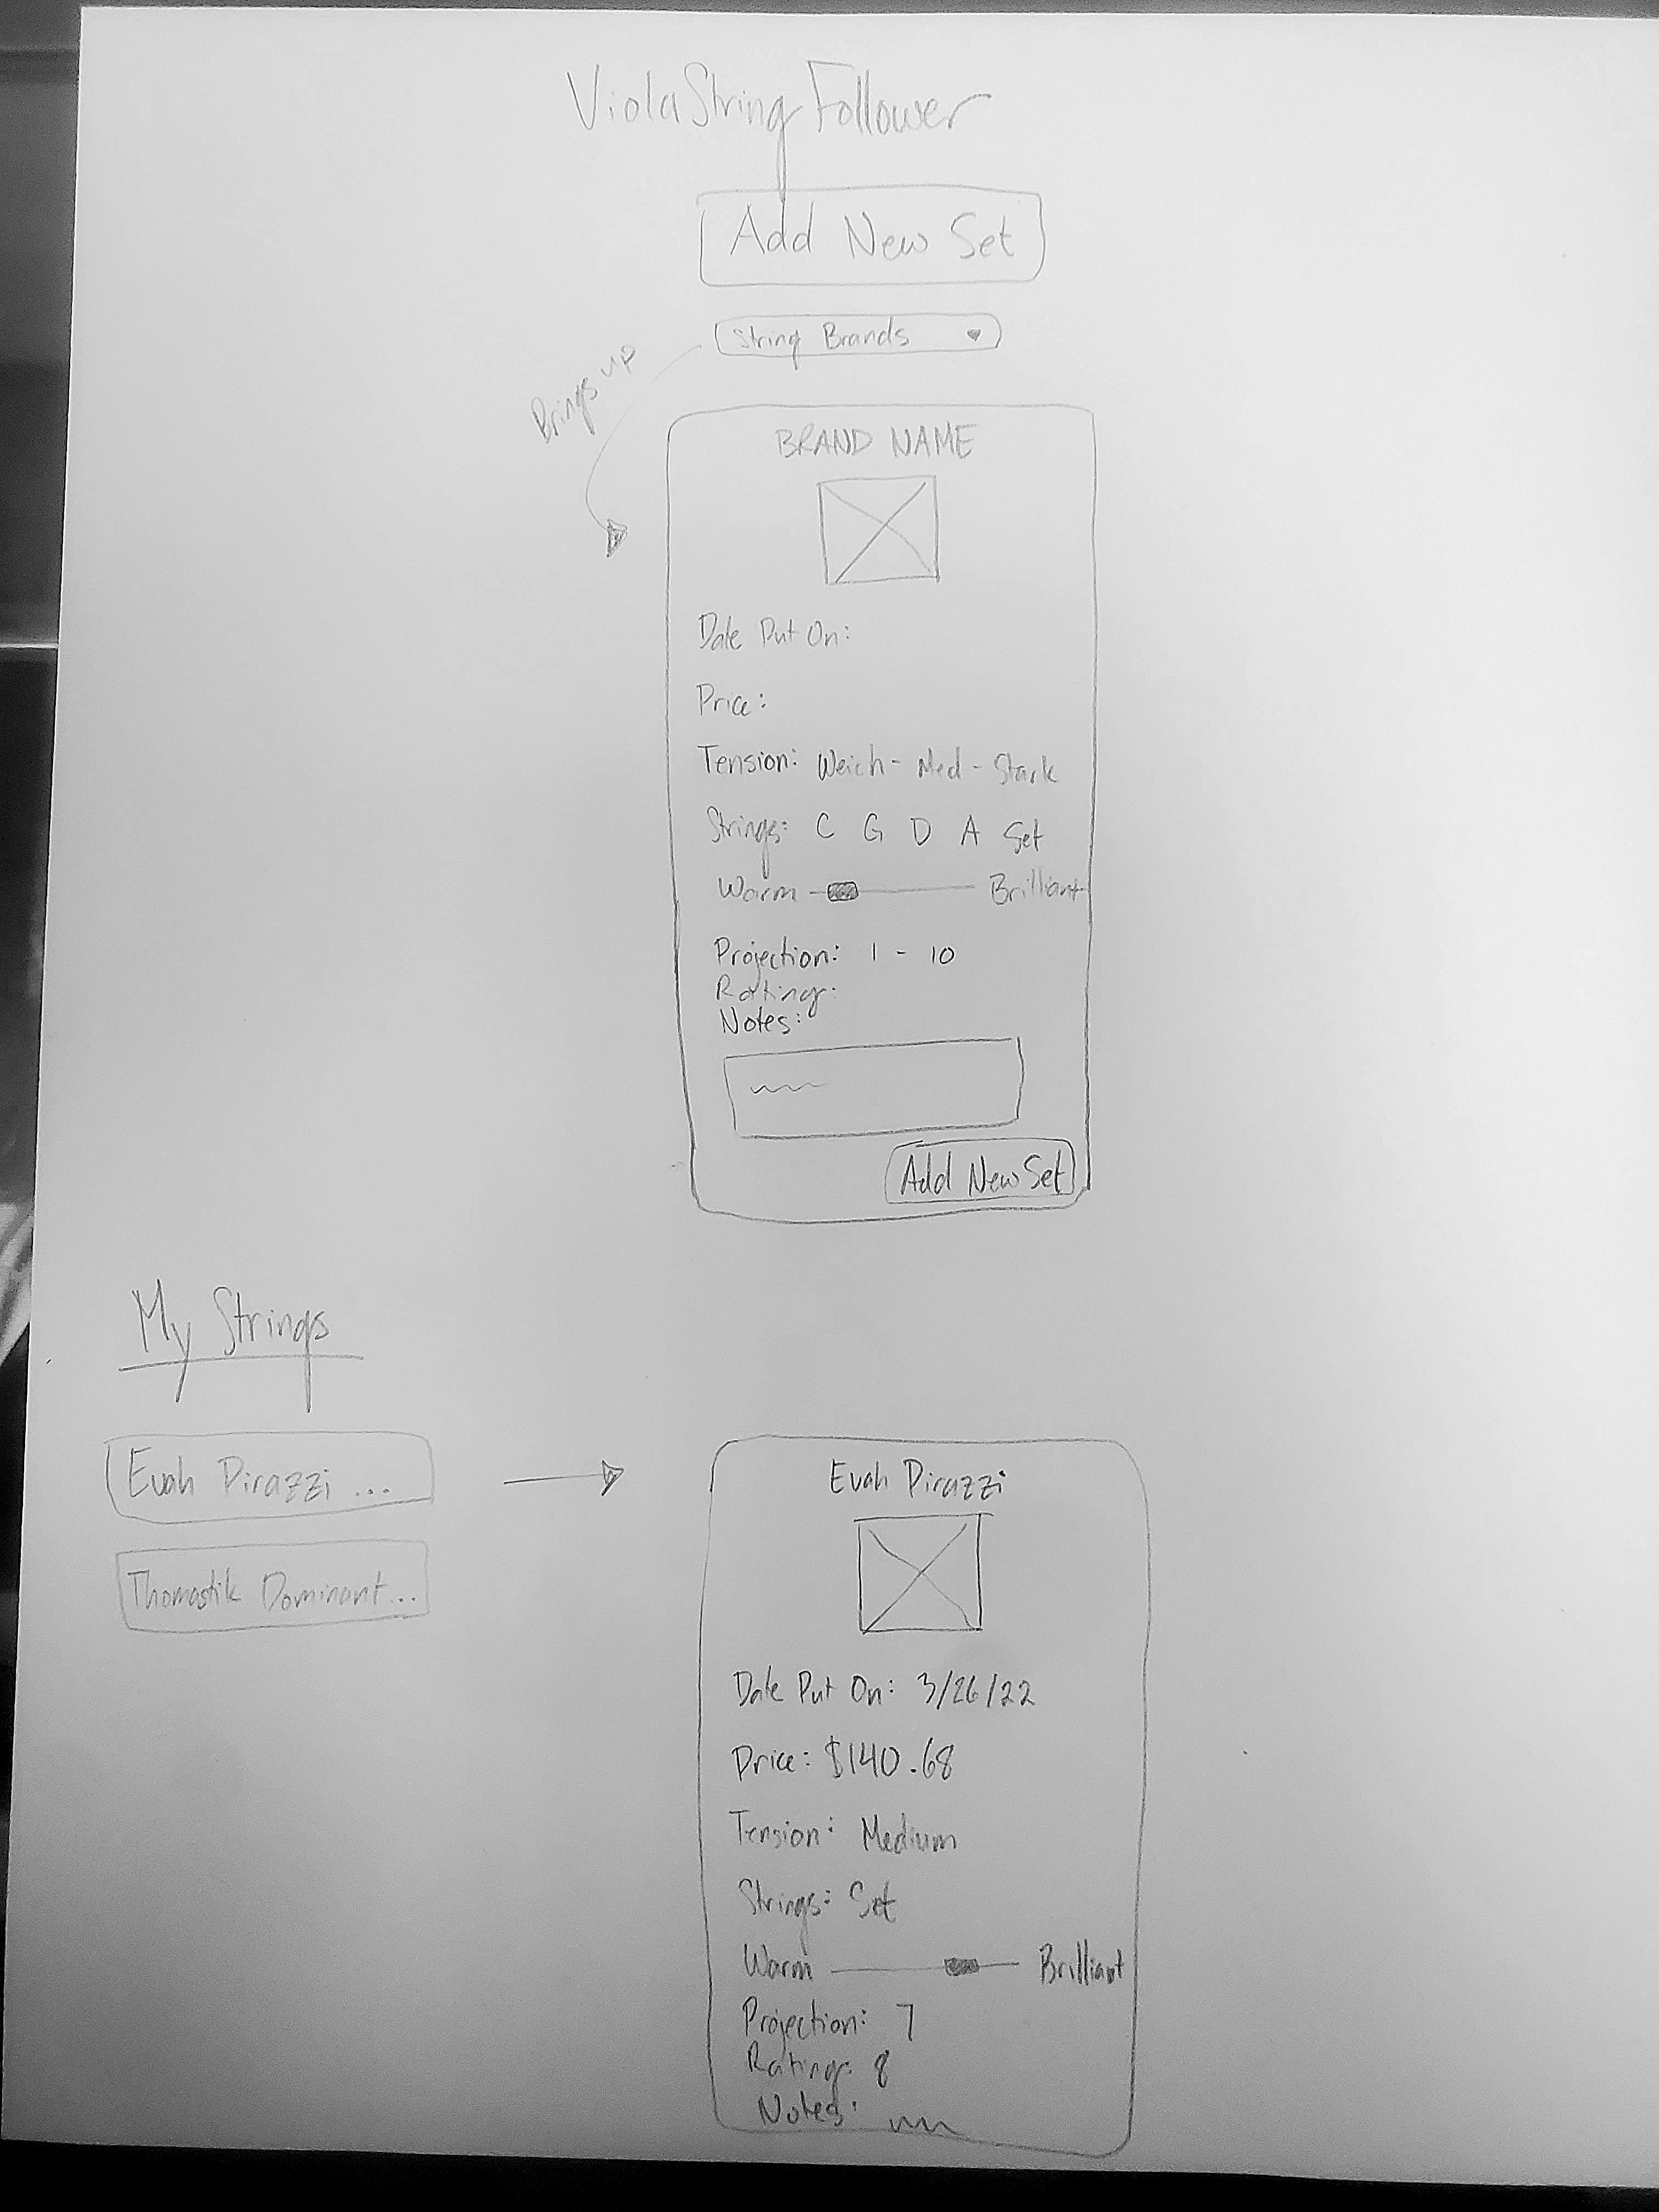 ViolaStringFollower
Add New Set
String Brands
Brings up
BRAND NAME
Date Put On:
Price:
Tension: Weich - Med - Stark
Strings: C G D A Set
Warm Brilliant
Projection: 1 - 10
Rating:
Notes:
Add New Set
My Strings
Evah Pirazzi ...
Thomastik Dominant...
Evah Pirazzi
Date Put On: 3/26/22
Price: $140.68
Tension: Medium
Strings: Set
Warm Brilliant
Projection: 7
Rating: 8
Notes: